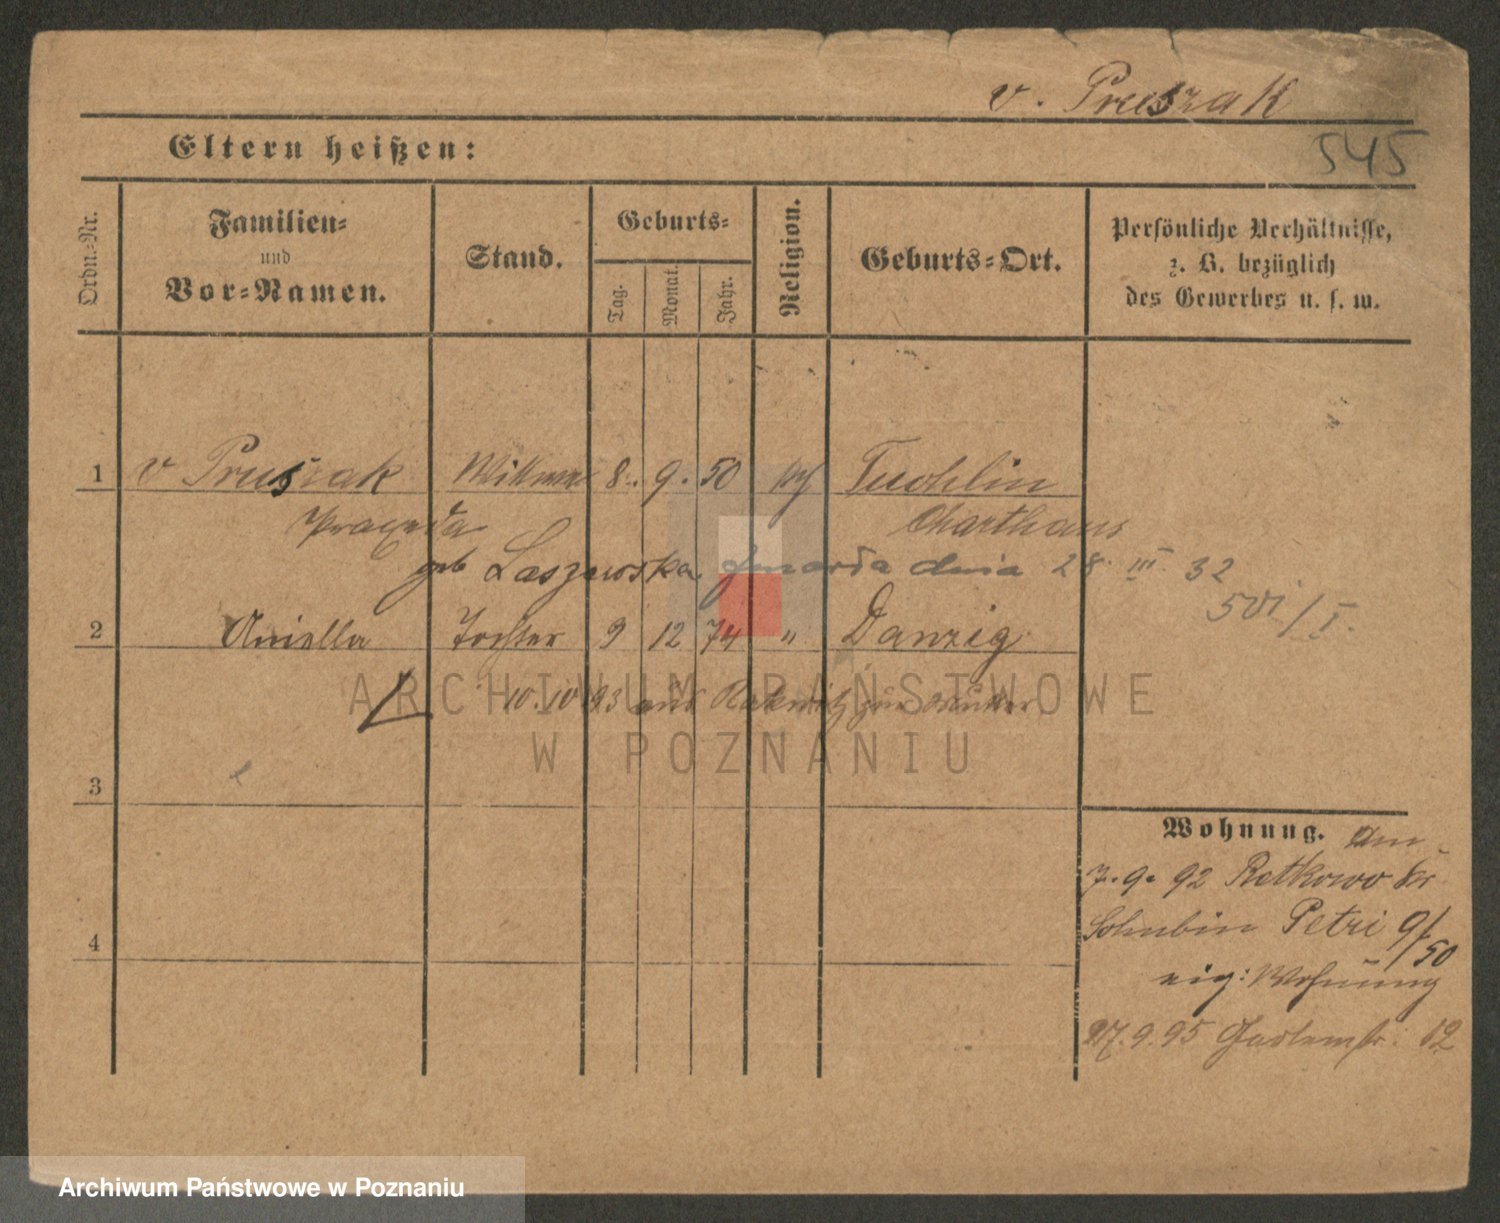 v. Pruszak
545
Eltern heißen:
Ordn.-Nr.
Familien-
und
Vor-Namen.
Stand.
Geburts-
Tag.
Monat.
Jahr.
Religion.
Geburts-Ort.
Persönliche Verhältnisse,
z. B. bezüglich
des Gewerbes u. s. w.
1 v Pruszak Wittwe 8. 9. 50 Tuchlin
Praxeda Charthaus
geb Laszewska. zmarła dnia 28. III 32
2 Aniella Tochter 9 12 74 " Danzig
10.10 93 aus Rakwitz zur Mutter
3
4
Wohnung. Am
7. 9. 92 Retkowo Kr
Schubin Petri 9/
50
eig: Wohnung
27. 9. 95 12
ARCHIWUM PAŃSTWOWE
W POZNANIU
Archiwum Państwowe w Poznaniu